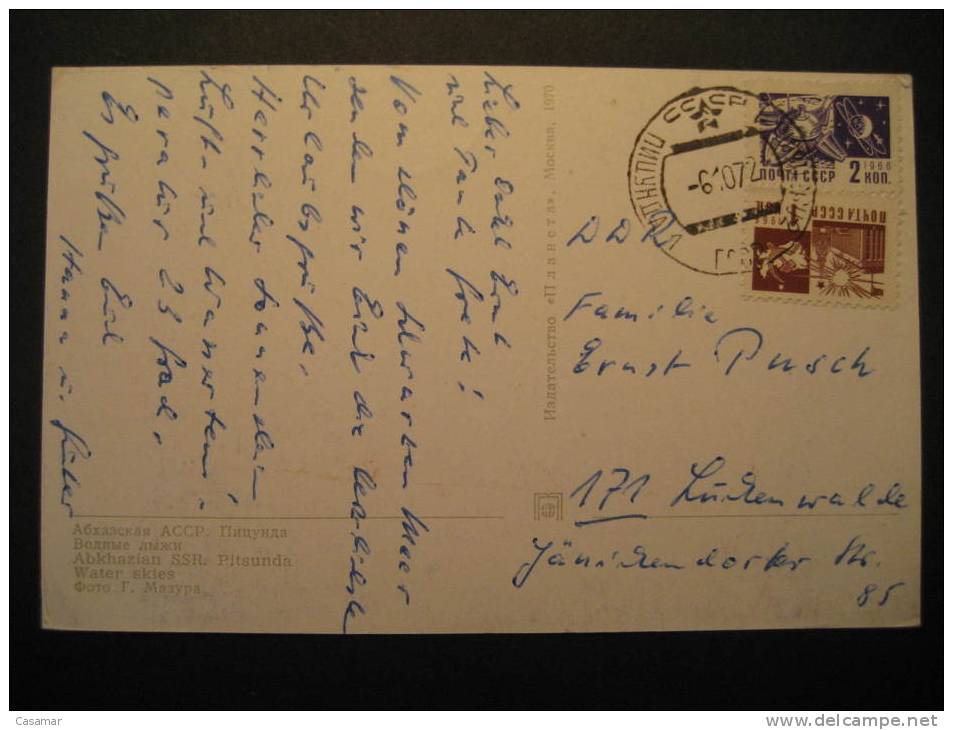 Lieber Onkel Ernst
und Tante Grete!
Vom schönen Schwarzen Meer
senden wir Euch die herzlichsten
Urlaubsgrüße.
Herrlicher Sonnenschein
Luft- und Wassertem-
peratur 25 Grad.
Es grüßen Euch
Hanna u.
Издательство «Планета». Москва, 1970
Абхазская АССР. Пицунда
Водные лыжи
Abkhazian SSR. Pitsunda
Water skies
Фото Г. Мазура
ПОЧТА СССР
1966
2 КОП.
ПОЧТА СССР
1966
СССР
DDR
Familie
Ernst Pusch
171 Luckenwalde
Jänickendorfer Str.
85
Casamar
www.delcampe.net